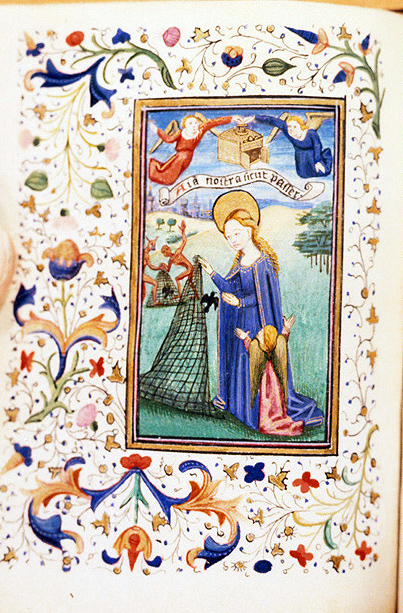 Aīa nostra sicut passer